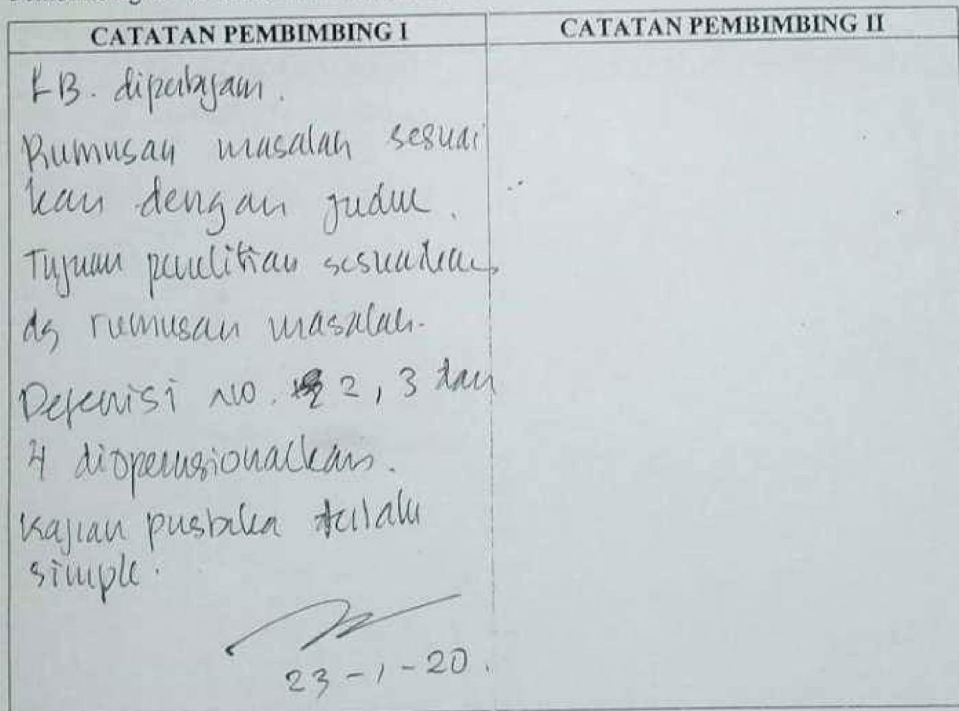 CATATAN PEMBIMBING I
CATATAN PEMBIMBING II
LB. dipertajam.
Rumusan masalah sesuai
kan dengan judul.
Tujuan penelitian sesuaikan
dg rumusan masalah.
Defenisi no. 2, 3 dan
4 dioperasionalkan.
Kajian pustaka terlalu
simple.
23-1-20.